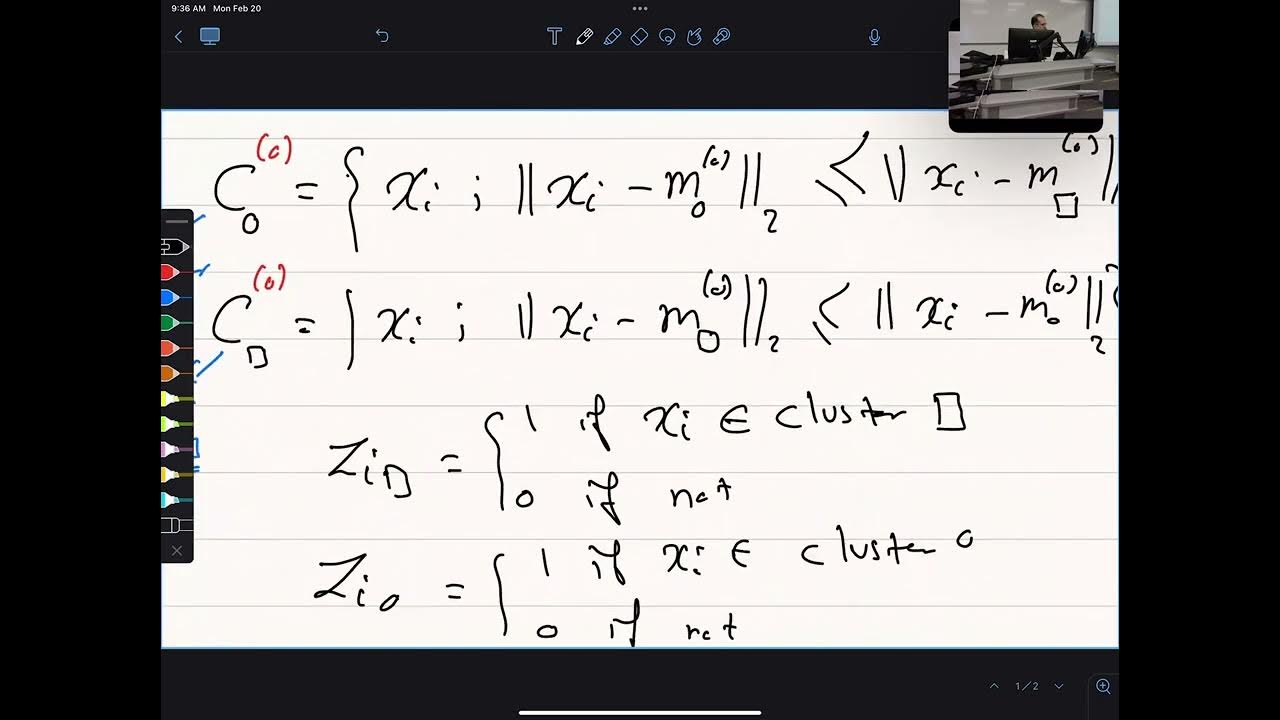 9:36 AM Mon Feb 20
C○^(0) = { xi ; ‖xi − m○^(0)‖₂ ⩽ ‖xi − m□^(0)‖
C□^(0) = { xi ; ‖xi − m□^(0)‖₂ ⩽ ‖xi − m○^(0)‖₂
Zi□ = { 1 if xi ∈ cluster □
0 if not
Zi○ = { 1 if xi ∈ cluster ○
0 if not
1/2